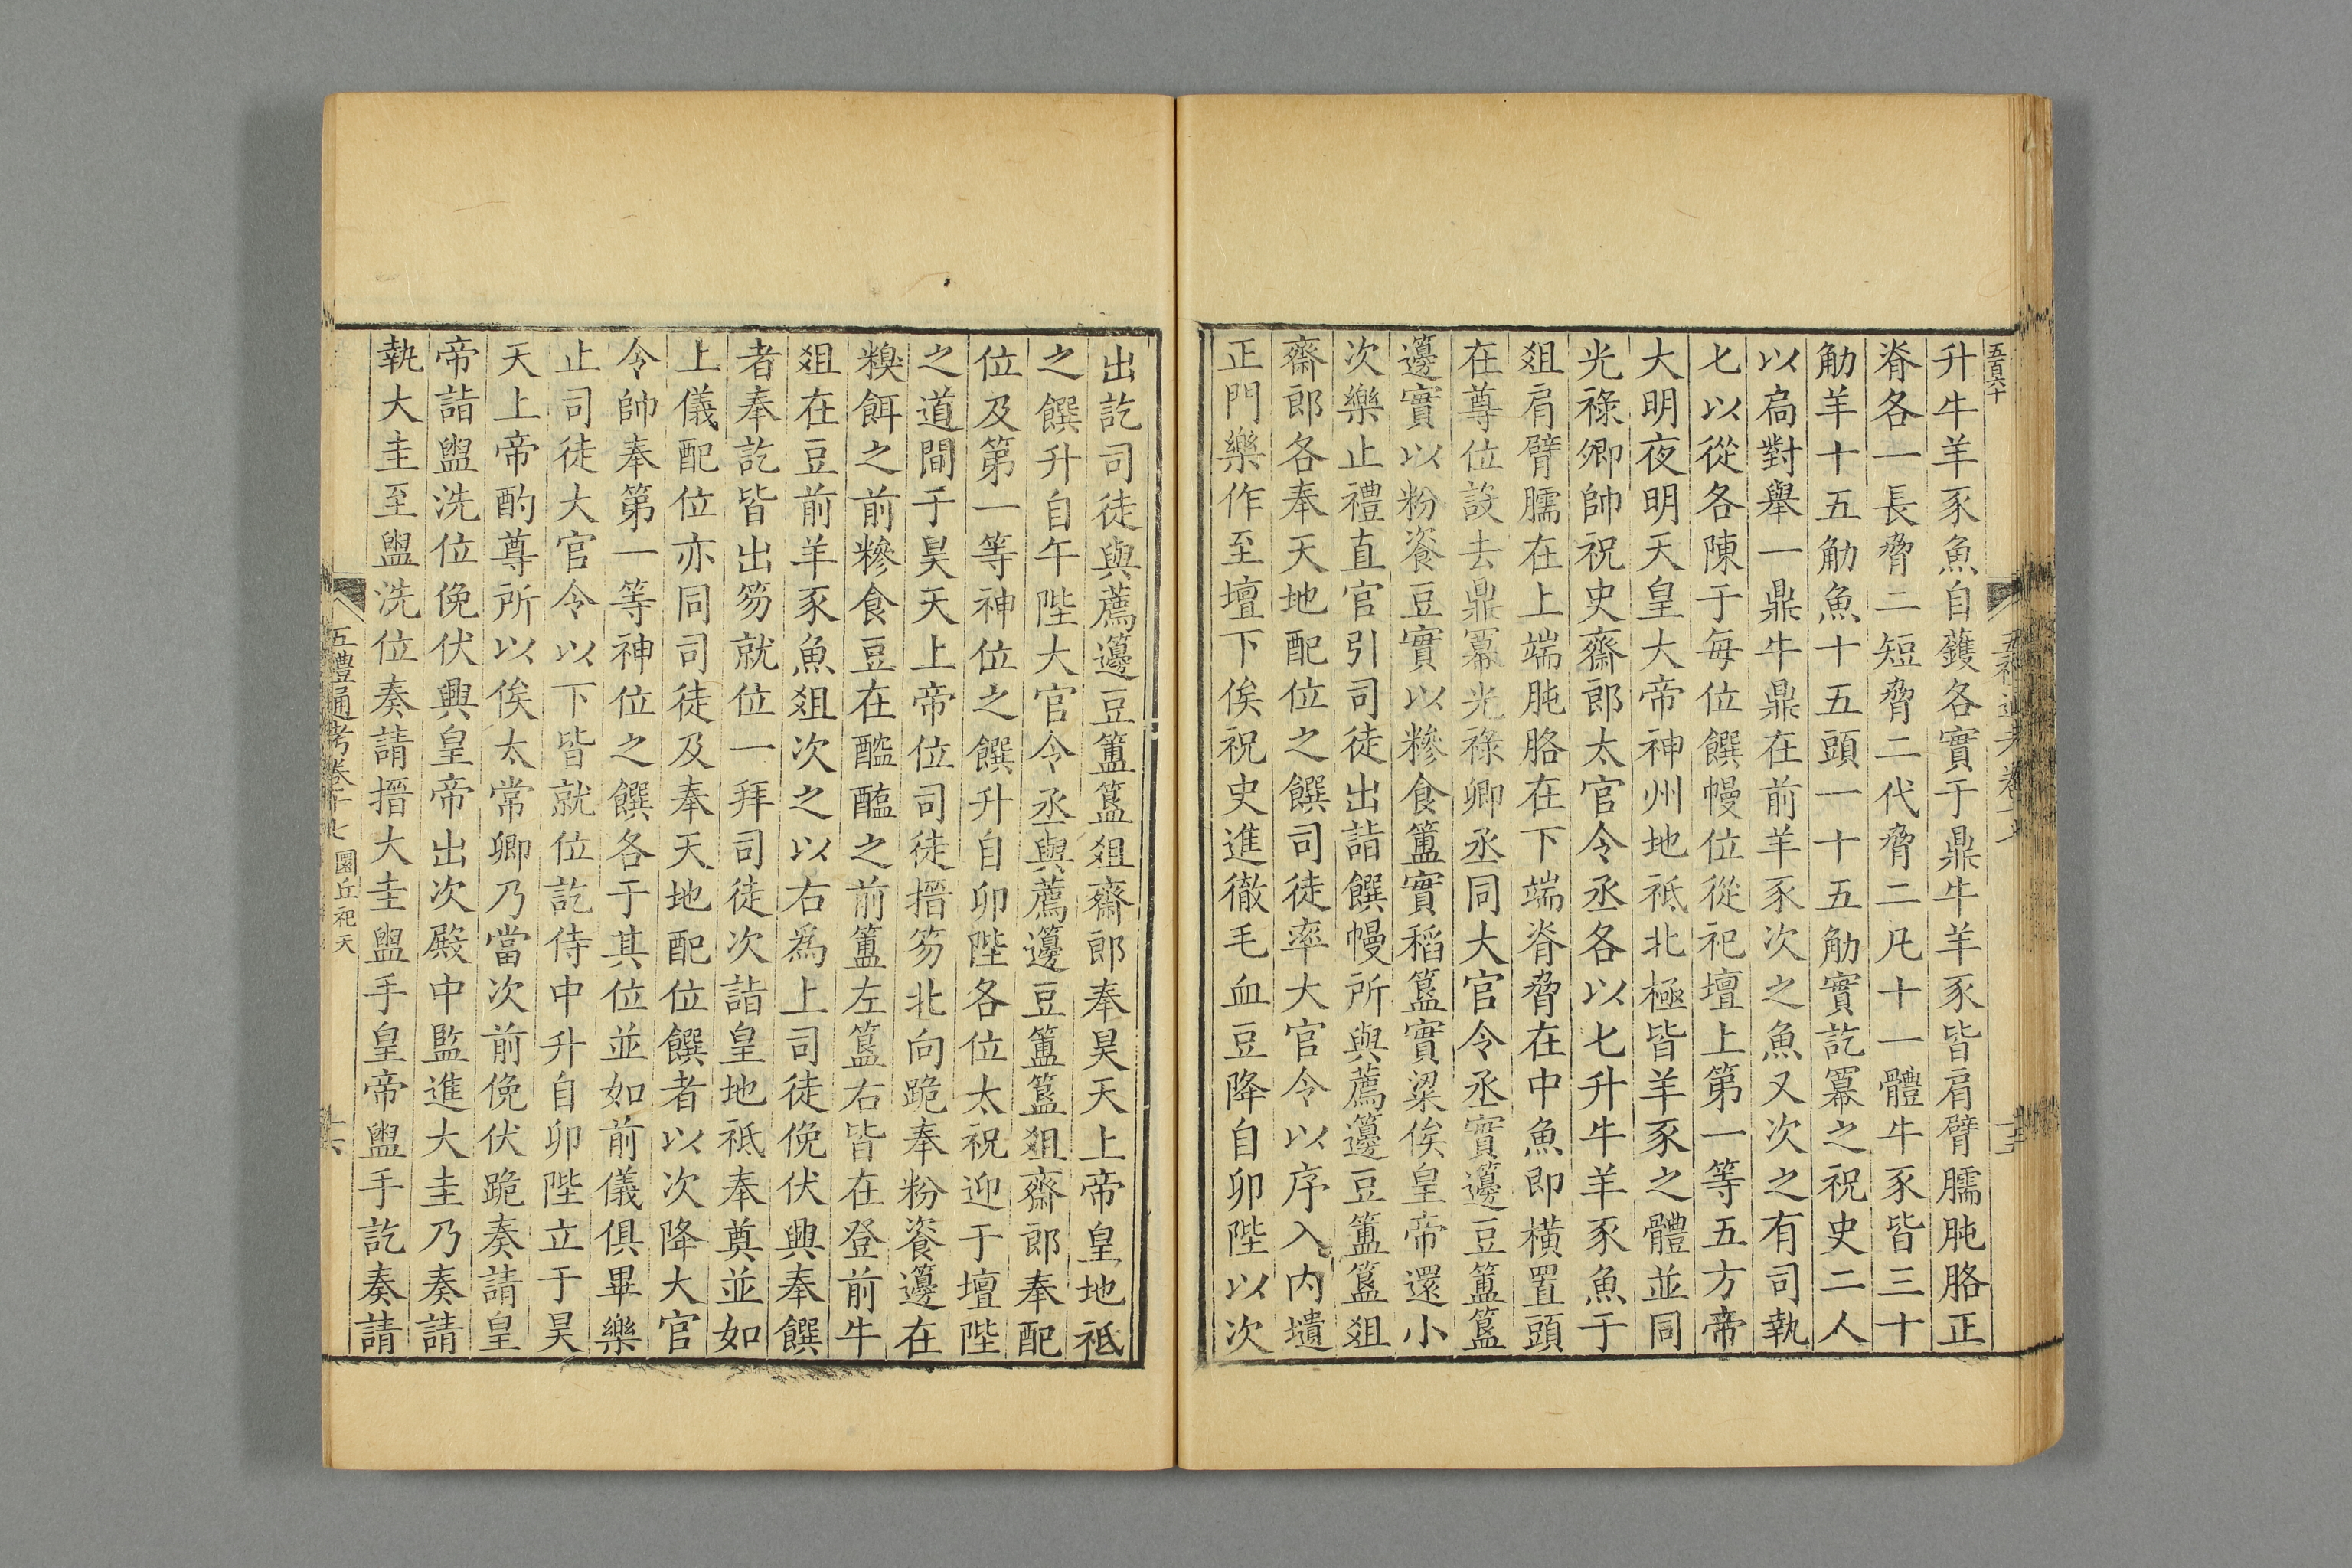 五百六十
升牛羊豕魚自鑊各實于鼎牛羊豕皆肩臂臑肫胳正
脊各一長脅二短脅二代脅二凡十一體牛豕皆三十
觔羊十五觔魚十五頭一十五觔實訖冪之祝史二人
以扃對舉一鼎牛鼎在前羊豕次之魚又次之有司執
匕以從各陳于每位饌幔位從祀壇上第一等五方帝
大明夜明天皇大帝神州地祇北極皆羊豕之體並同
光祿卿帥祝史齋郎太官令丞各以匕升牛羊豕魚于
俎肩臂臑在上端肫胳在下端脊脅在中魚即橫置頭
在尊位設去鼎冪光祿卿丞同大官令丞實籩豆簠簋
籩實以粉餈豆實以糝食簠實稻簋實粱俟皇帝還小
次樂止禮直官引司徒出詣饌幔所與薦籩豆簠簋俎
齋郎各奉天地配位之饌司徒率大官令以序入內壝
正門樂作至壇下俟祝史進徹毛血豆降自卯陛以次
出訖司徒與薦籩豆簠簋俎齋郎奉昊天上帝皇地祇
之饌升自午陛大官令丞與薦籩豆簠簋俎齋郎奉配
位及第一等神位之饌升自卯陛各位太祝迎于壇陛
之道間于昊天上帝位司徒搢笏北向跪奉粉餈籩在
糗餌之前糝食豆在醓醢之前簠左簋右皆在登前牛
俎在豆前羊豕魚俎次之以右爲上司徒俛伏興奉饌
者奉訖皆出笏就位一拜司徒次詣皇地祇奉奠並如
上儀配位亦同司徒及奉天地配位饌者以次降大官
令帥奉第一等神位之饌各于其位並如前儀俱畢樂
止司徒大官令以下皆就位訖侍中升自卯陛立于昊
天上帝酌尊所以俟太常卿乃當次前俛伏跪奏請皇
帝詣盥洗位俛伏興皇帝出次殿中監進大圭乃奏請
執大圭至盥洗位奏請搢大圭盥手皇帝盥手訖奏請
五禮通考卷十七 圜丘祀天